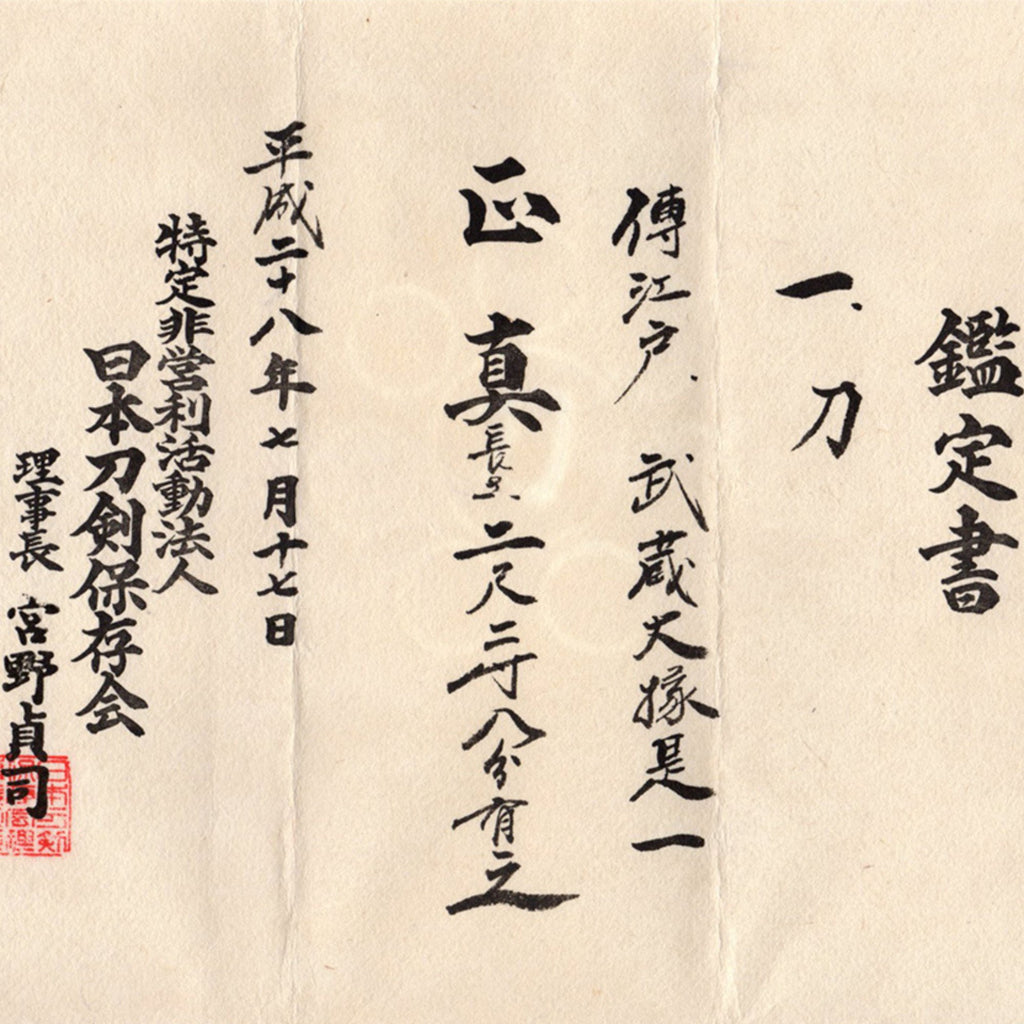 鑑定書
一、刀
傳江戸、武蔵大掾是一
正真
長さ二尺二寸八分有之
平成二十八年七月十七日
特定非営利活動法人
日本刀剣保存会
理事長 宮野貞司